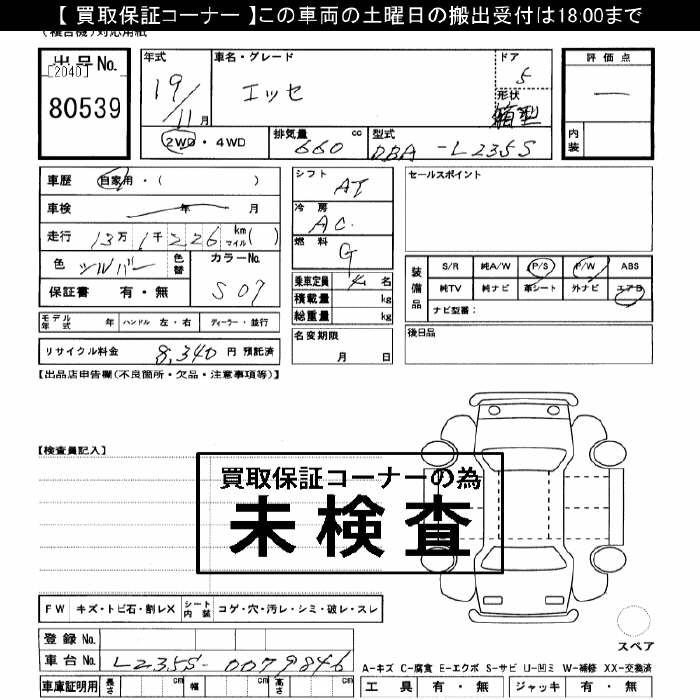 【 買取保証コーナー 】この車両の土曜日の搬出受付は18:00まで
(複合機)対応用紙
出品No.
[2040]
80539
年式
19/11月
車名・グレード
エッセ
ドア
5
形状
箱型
評価点
―
内装
2WD・4WD
排気量 660 cc
型式 DBA-L235S
車歴 自家用・( )
車検 年 月
走行 13万1千226 km マイル( )
色 シルバー
色替
カラーNo. S07
保証書 有・無
シフト AT
冷房 AC.
燃料 G
乗車定員 4 名
積載量 kg
総重量 kg
名変期限
月 日
セールスポイント
装備品
S/R 純A/W P/S P/W ABS
純TV 純ナビ 革シート 外ナビ エアB
ナビ型番：
後日品
モデル年式 年 ハンドル 左・右 ディーラー・並行
リサイクル料金 8,340 円 預託済
【出品店申告欄(不良箇所・欠品・注意事項等)】
【検査員記入】
買取保証コーナーの為
未検査
FW キズ・トビ石・割レX シート内装 コゲ・穴・汚レ・シミ・破レ・スレ
スペア
登録No.
車台No. L235S-0079846
A-キズ C-腐食 E-エクボ S-サビ U-凹ミ W-補修 XX-交換済
車庫証明用 長さ cm 幅 cm 高さ cm
工具 有・無 ジャッキ 有・無